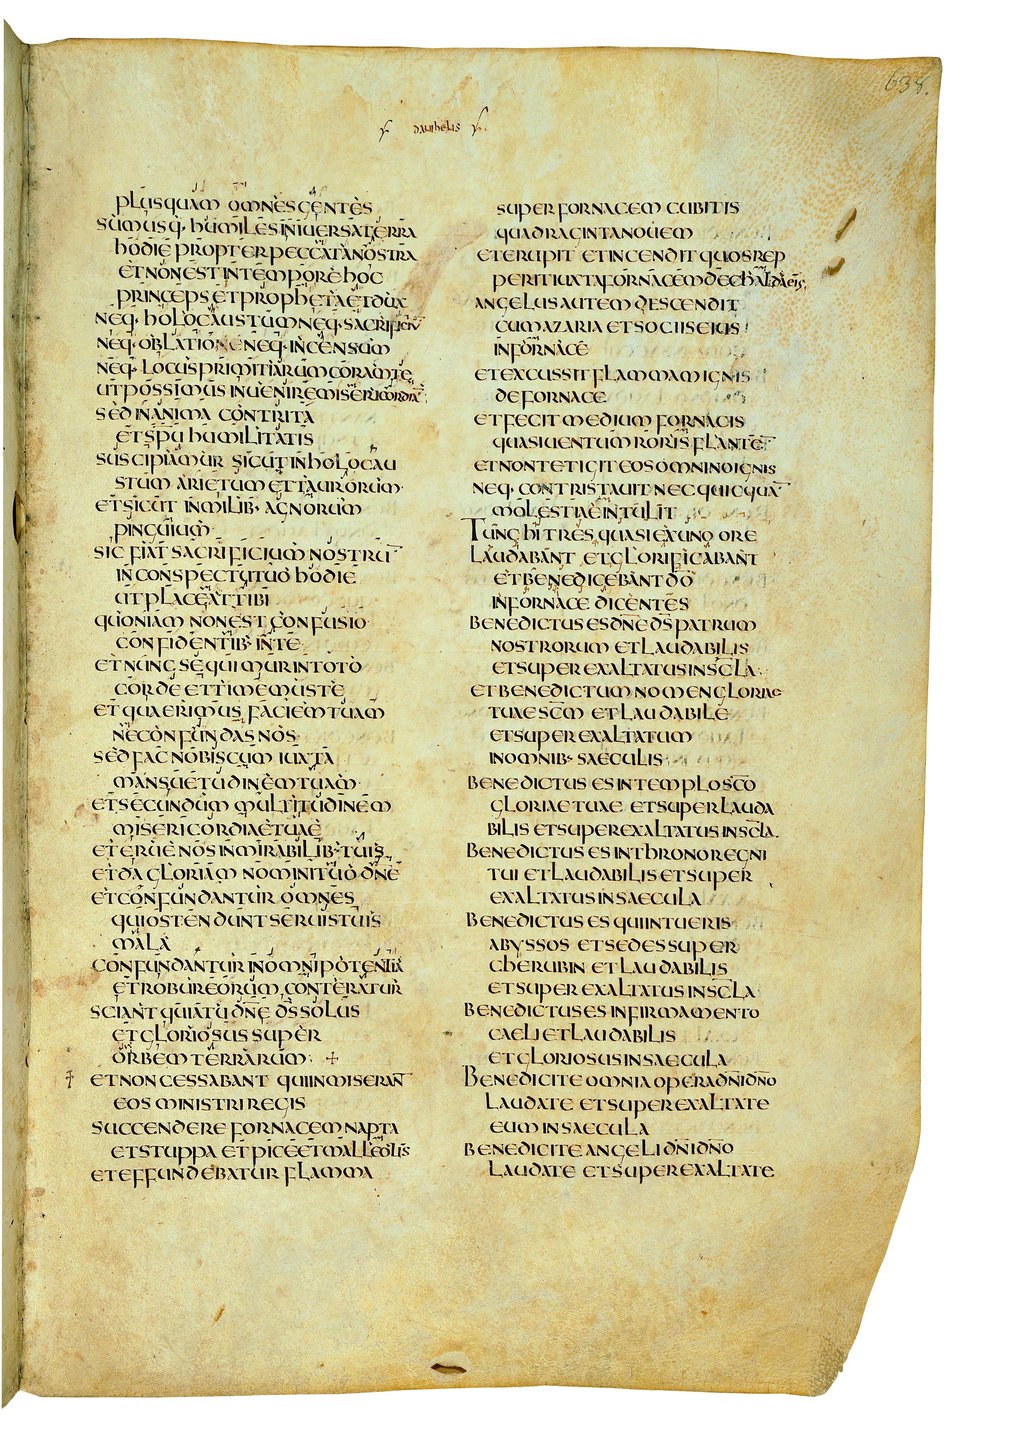 638.
danihelis
plus quam omnes gentes
sumusq· humiles in universa terra
hodie propter peccata nostra
et non est in tempore hoc
princeps et propheta et dux
neq· holocaustum neq· sacrificiū
neq· oblatione neq· incensum
neq· locus primitiarum coram te
ut possimus invenire misericordiā
sed in anima contrita
et spu humilitatis
suscipiamur sicut in holocau
stum arietum et taurorum·
et sicut in milib· agnorum
pinguium·
sic fiat sacrificium nostrū
in conspectu tuo hodie
ut placeat tibi
quoniam non est confusio
confidentib· in te·
et nunc sequimur in toto
corde et timemus te
et quaerimus faciem tuam
ne confundas nos·
sed fac nobiscum iuxta
mansuetudinem tuam·
et secundum multitudinem
misericordiae tuae
et erue nos in mirabilib· tuis
et da gloriam nomini tuo dn̄e
et confundantur omnes
qui ostendunt servis tuis
mala
confundantur in omni potentia
et robur eorum conteratur
sciant quia tu dn̄e ds̄ solus
et gloriosus super
orbem terrarum· +
et non cessabant qui inmiserant
eos ministri regis
succendere fornacem napta
et stuppa et pice et malleolis
et effundebatur flamma
super fornacem cubitis
quadraginta novem
et erupit et incendit quos rep
perit iuxta fornacem de chaldaeis·
angelus autem descendit
cum azaria et sociis eius
in fornacē
et excussit flammam ignis
de fornace
et fecit medium fornacis
quasi ventum roris flantē
et non tetigit eos omnino ignis
neq· contristavit nec quicquā
molestiae intulit
Tunc hi tres quasi ex uno ore
laudabant et glorificabant
et benedicebant dō
in fornace dicentes
Benedictus es dn̄e ds̄ patrum
nostrorum et laudabilis
et superexaltatus in scla·
et benedictum nomen gloriae
tuae scm et laudabile
et superexaltatum
in omnib· saeculis
Benedictus es in templo scō
gloriae tuae et superlauda
bilis et superexaltatus in scla·
Benedictus es in throno regni
tui et laudabilis et super
exaltatus in saecula
Benedictus es qui intueris
abyssos et sedes super
cherubin et laudabilis
et superexaltatus in scla
Benedictus es in firmamento
caeli et laudabilis
et gloriosus in saecula
Benedicite omnia opera dn̄i dn̄o
laudate et superexaltate
eum in saecula
Benedicite angeli dn̄i dn̄o
laudate et superexaltate